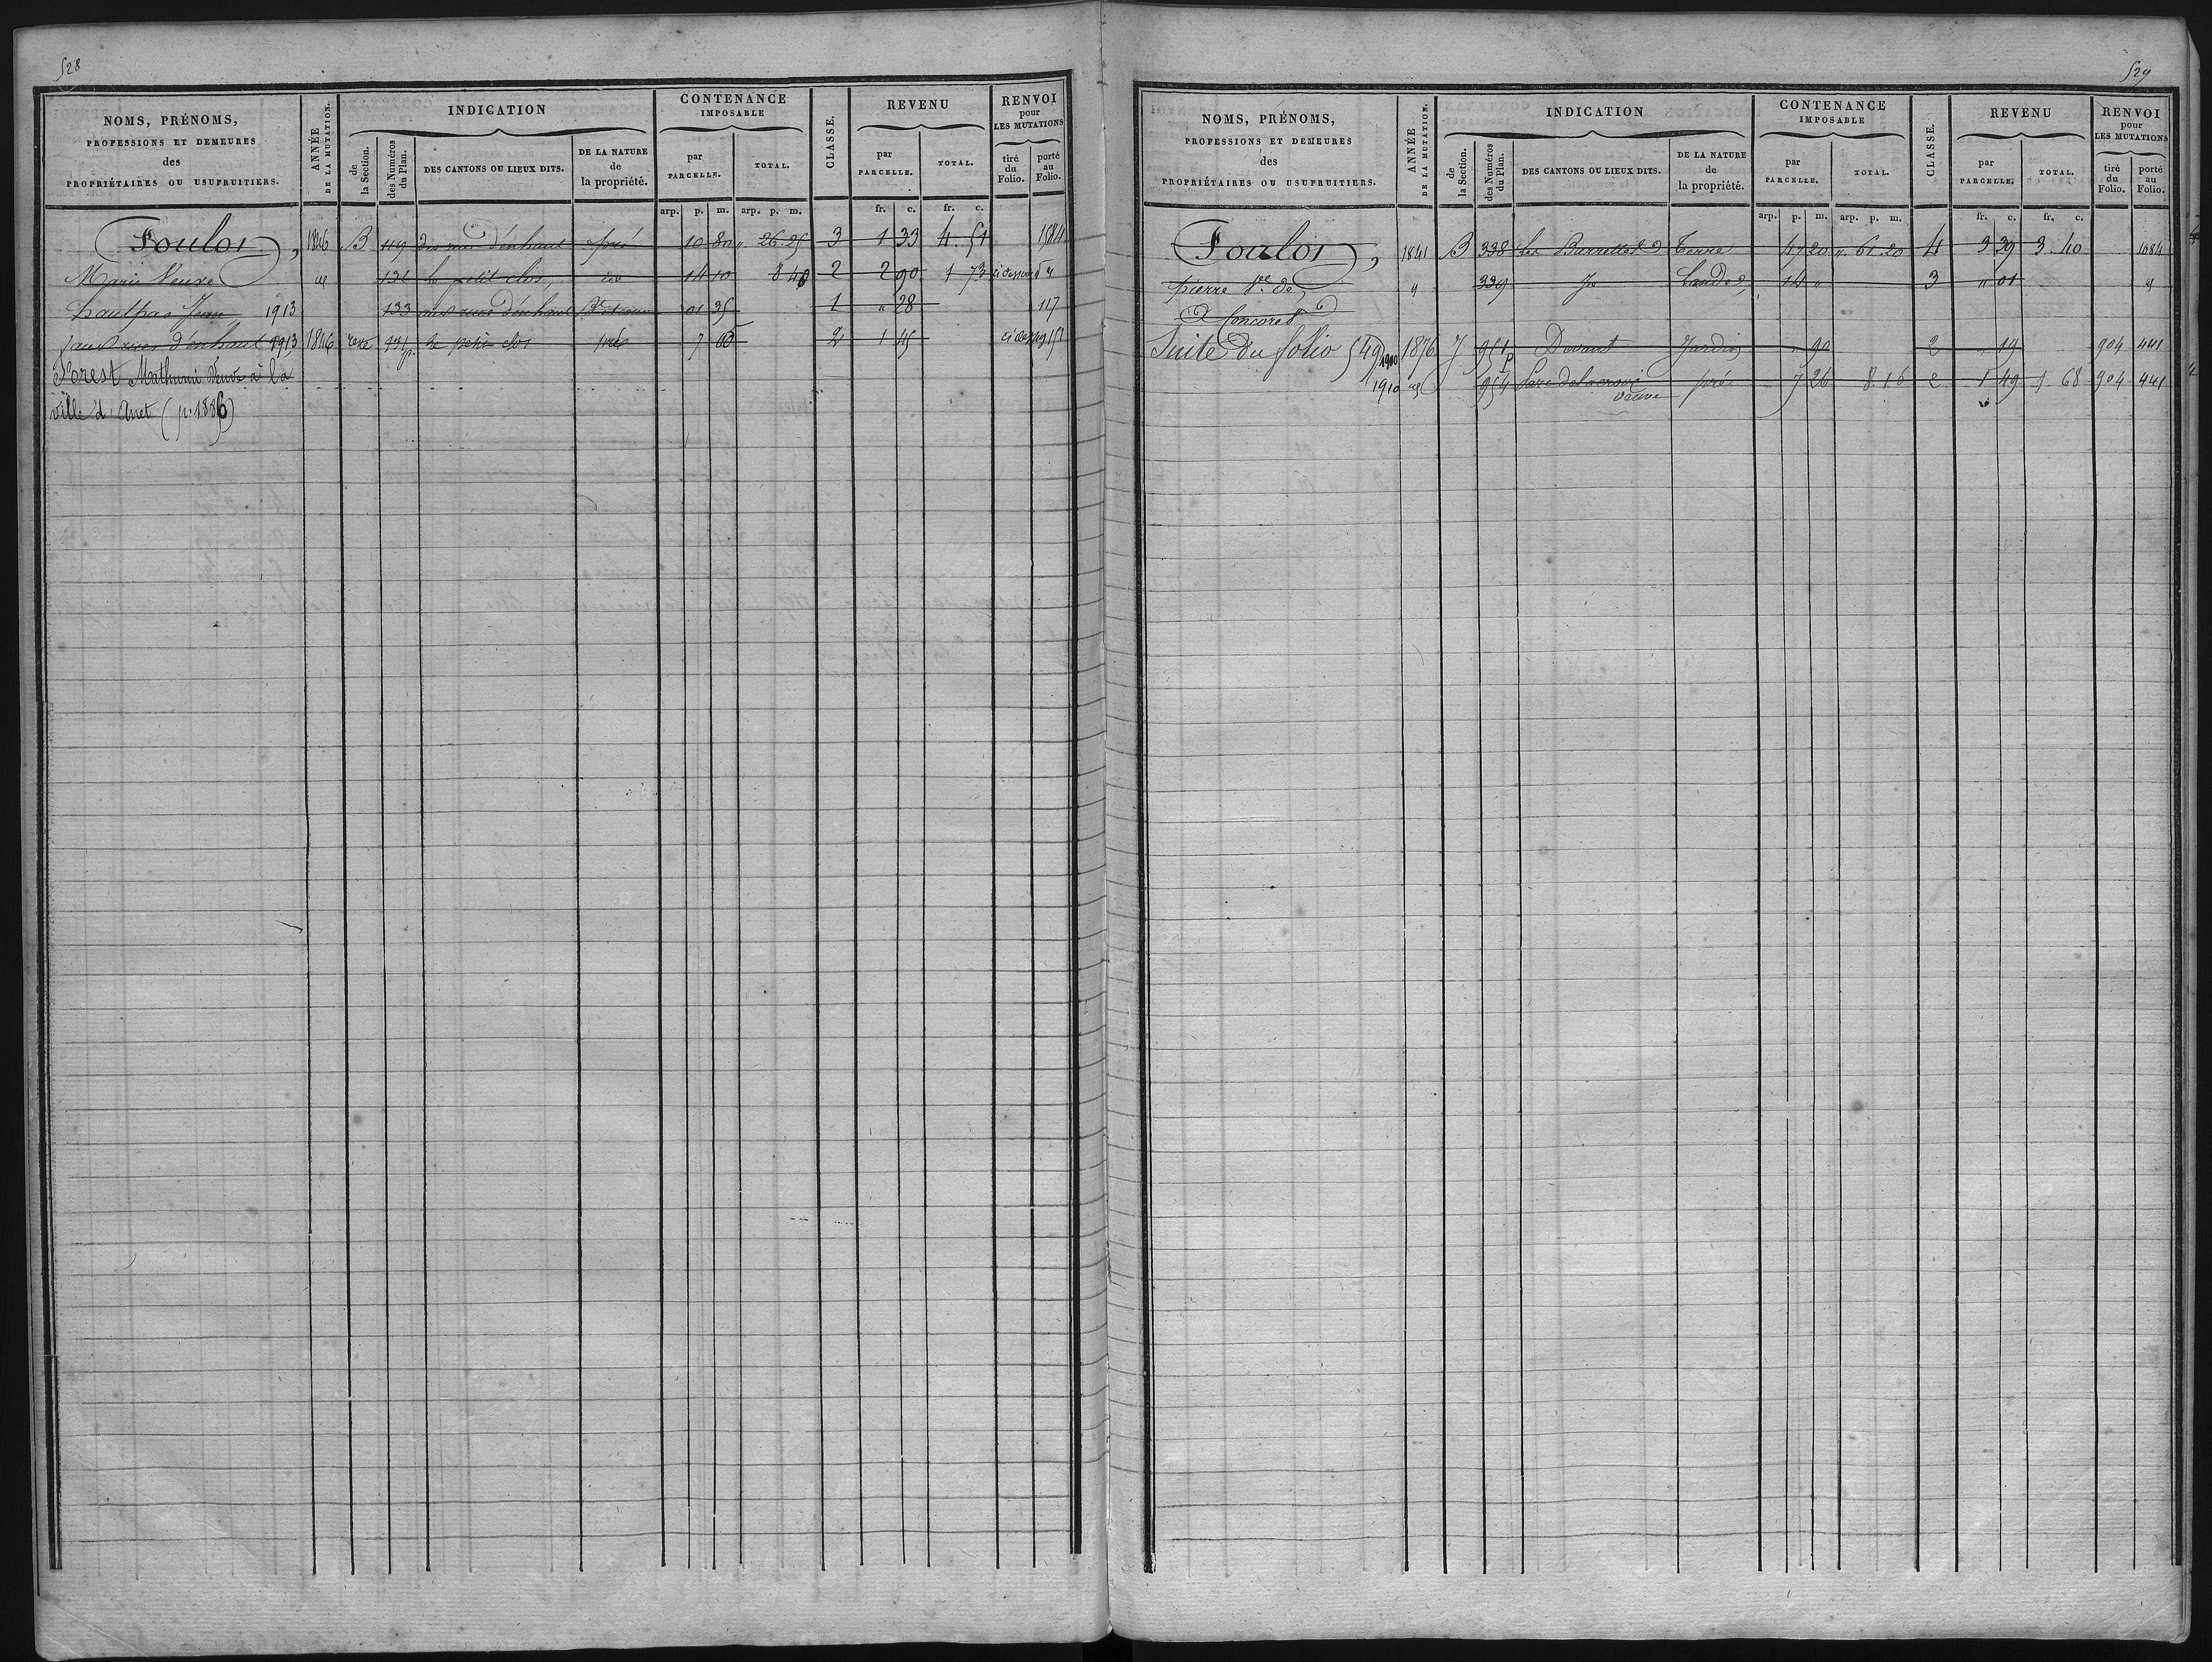 528
NOMS, PRÉNOMS,
PROFESSIONS ET DEMEURES
des
PROPRIÉTAIRES OU USUFRUITIERS.
ANNÉE
DE LA MUTATION.
INDICATION
de
la Section.
des Numéros
du Plan.
DES CANTONS OU LIEUX DITS.
DE LA NATURE
de
la propriété.
CONTENANCE
IMPOSABLE
par
PARCELLE.
TOTAL.
CLASSE.
REVENU
par
PARCELLE.
TOTAL.
RENVOI
pour
LES MUTATIONS
tiré
du
Folio.
porté
au
Folio.
arp. p. m. arp. p. m. fr. c. fr. c.
Foulon, 1846 B 119 d'enhaut pré 10 80 " 26.25 3 1 33 4.51 1584
Marie Veuve id 131 le petit clos, id 14 10 8 40 2 2 90 1 73
hautpas Jean 1913 133 d'enhaut 01 35 1 " 28 117
aux rues d'enhaut 1913 1846 131 p. le petit clos pré 7 2 1 45
Forest Mathurin Veuve à la
ville d'Anet (p. 1886)
529
NOMS, PRÉNOMS,
PROFESSIONS ET DEMEURES
des
PROPRIÉTAIRES OU USUFRUITIERS.
ANNÉE
DE LA MUTATION.
INDICATION
de
la Section.
des Numéros
du Plan.
DES CANTONS OU LIEUX DITS.
DE LA NATURE
de
la propriété.
CONTENANCE
IMPOSABLE
par
PARCELLE.
TOTAL.
CLASSE.
REVENU
par
PARCELLE.
TOTAL.
RENVOI
pour
LES MUTATIONS
tiré
du
Folio.
porté
au
Folio.
arp. p. m. arp. p. m. fr. c. fr. c.
Foulon, 1841 B 338 Les Barrettes Terre 47 20 " 61.20 4 3 39 3.40 1084
pierre Ve de " 339 Landes, 14 " 3 " 01 "
Concoret
Suite du folio 549 1900 1876 J 951 p Devant Jardin " 90 2 " 19 904 441
1910 id 954 pré 7 26 8.16 2 1 49 1.68 904 441
veuve